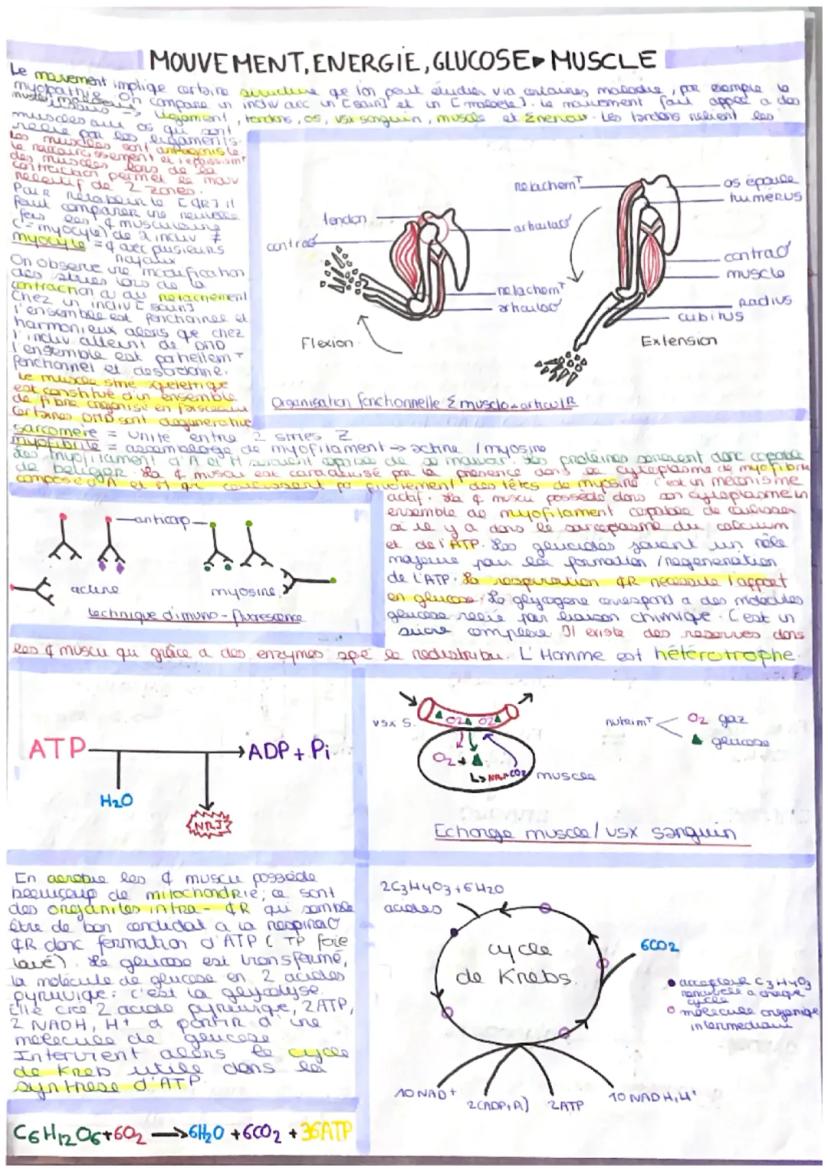 MOUVEMENT, ENERGIE, GLUCOSE ▸ MUSCLE
Le mouvement implique certaine structure que l'on peut étudier via certaines maladie, par exemple la
myopathie. On compare un indiv avec un C sain] et un C malade]. Le mouvement fait appel a des
muscles impliqués → ligament, tendons, os, vsx sanguin, muscle et Énerveux. Les tendons relient les
muscles aux os qui sont
relié par les ligaments.
Les muscles sont antagoniste
le raccourcissement et l'épaississmt
des muscles lors de la
contraction permet le mouv
relatif de 2 zones.
il
faut comparer une
les ¢ musculaire
C = myocyte] de 2 indiv ≠
myocyte = ¢ avec plusieurs
noyaux
On observe une modification
des stries lors de la
contraction ou du relachement
Chez un indiv C sain]
l'ensemble est fonctionnel et
harmonieux alors que chez
l'indiv atteint de DMD
l'ensemble est partiellemt
fonctionnel et désordonné.
Le muscle strié squelettique
est constitué d'un ensemble
de fibre organisé en faisceaux
Certaines DMD sont dégénérative
tendon
contrac°
articulac°
relachemt
articulac°
Flexion
relachemt
os épaule
humérus
contrac°
muscle
radius
cubitus
Extension
Organisation fonctionnelle Σ musculo-articulR
sarcomère = unité entre 2 stries Z
myofibrille = assemblage de myofilament → actine / myosine
Les myofilament d'A et M seraient capable de se mouvoir. Les protéines seraient donc capable
de bouger. La ¢ muscu est caractérisé par la présence dans le cytoplasme de myofibrille
composé d'A et M par pivotement des têtes de myosine. C'est un mécanisme
actif. La ¢ muscu possède dans son cytoplasme un
ensemble de myofilament capable de coulisser
si il y a dans le sarcoplasme du calcium
et de l'ATP. Les glucides jouent un rôle
majeure pour la formation / régénération
de l'ATP. La respiration ¢R nécessite l'apport
en glucose. Le glycogène correspond a des molécules
glucose relié par liaison chimique. C'est un
sucre complexe Il existe des réserves dans
les ¢ muscu qui grâce a des enzymes spé le redistribu. L'Homme est hétérotrophe.
anticorp
actine
myosine
technique d'imuno-fluorescence
ATP → ADP + Pi
H2O
NRJ
vsx s.
O2 O2
O2 +
NRJ + CO2
muscle
nutrimt
O2 gaz
glucose
Echange muscle / vsx sanguin
En aerobie les ¢ muscu possède
beaucoup de mitochondrie; ce sont
des organites intra-¢R qui semble
être de bon candidat a la respirac°
¢R donc formation d'ATP (TP foie
lavé). Le glucose est transformé,
la molécule de glucose en 2 acides
pyruvique: c'est la glycolyse.
Elle crée 2 acide pyruvique, 2ATP,
2 NADH, H+ a partir d'une
molécule de glucose
Intervient alors le cycle
de Kreb utile dans la
synthèse d'ATP.
C6H12O6 + 6O2 → 6H2O + 6CO2 + 36ATP
2C3H4O3 + 6H2O
acides
cycle
de Krebs
6CO2
10 NAD+
2(ADP, Pi)
2ATP
10 NADH, H+
accepteur C3H4O3
renouvelé a chaque
cycle
molécule organique
intermédiaire